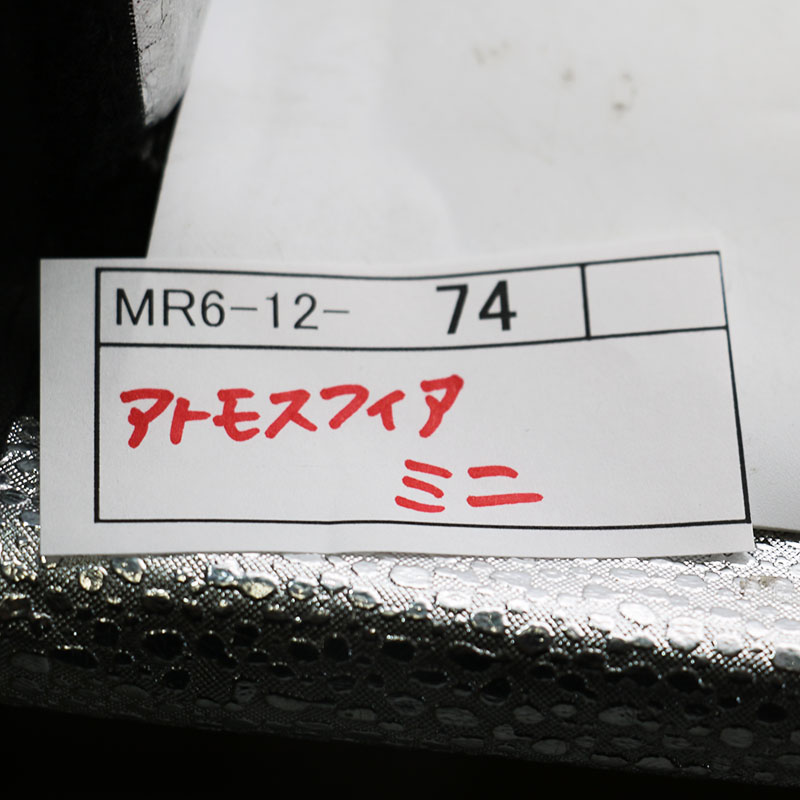 MR6-12- 74
アトモスフィア
ミニ